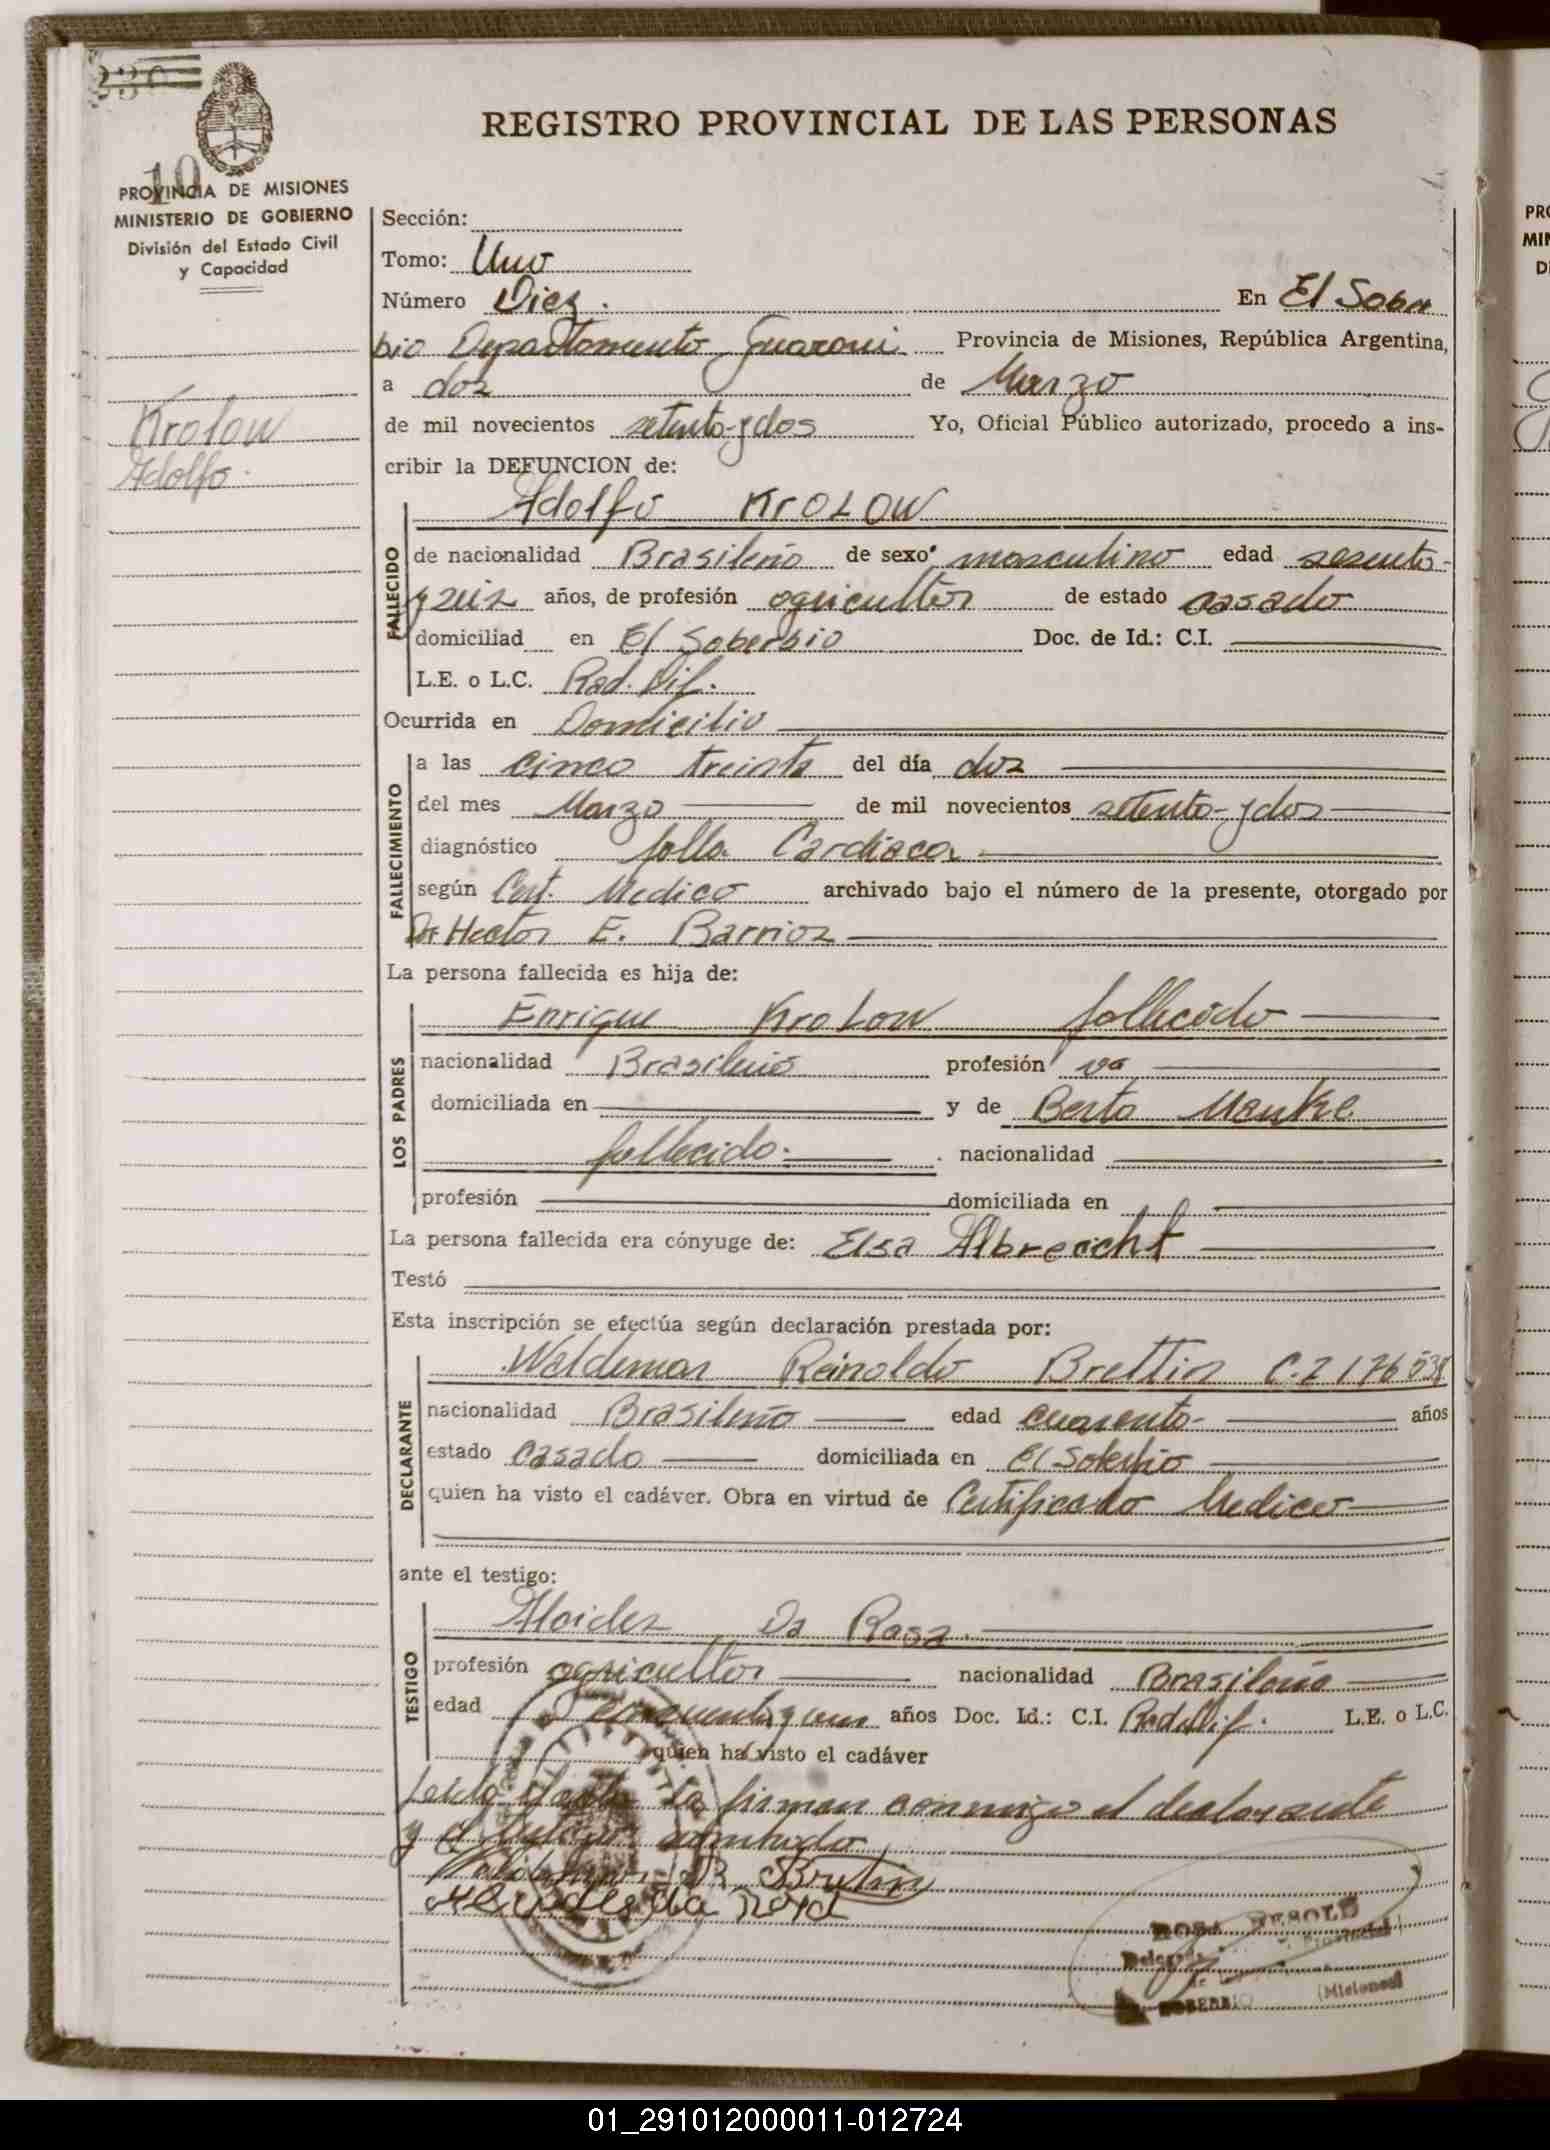 10
REGISTRO PROVINCIAL DE LAS PERSONAS
PROVINCIA DE MISIONES
MINISTERIO DE GOBIERNO
División del Estado Civil
y Capacidad
Krolow
Adolfo.
Sección:
Tomo: Uno
Número Diez. En El Sober
bio Departamento Guarani Provincia de Misiones, República Argentina,
a dos de Marzo
de mil novecientos setenta y dos Yo, Oficial Público autorizado, procedo a ins-
cribir la DEFUNCION de:
Adolfo KROLOW
FALLECIDO
de nacionalidad Brasileño de sexo masculino edad sesenta
y seis años, de profesión agricultor de estado casado
domiciliad en El Soberbio Doc. de Id.: C.I.
L.E. o L.C. Rad. Dif.
Ocurrida en Domicilio
FALLECIMIENTO
a las cinco treinta del día dos
del mes Marzo de mil novecientos setenta y dos
diagnóstico falla Cardiaca
según Cert. Medico archivado bajo el número de la presente, otorgado por
Dr Hector E. Barrios
La persona fallecida es hija de:
LOS PADRES
Enrique Krolow fallecido
nacionalidad Brasileño profesión
domiciliada en y de Berta Manke
fallecido. nacionalidad
profesión domiciliada en
La persona fallecida era cónyuge de: Elsa Albreicht
Testó
Esta inscripción se efectúa según declaración prestada por:
DECLARANTE
Waldemar Reinoldo Brettin C.2176038
nacionalidad Brasileño edad cuarenta años
estado Casado domiciliada en El Soberbio
quien ha visto el cadáver. Obra en virtud de Certificado Medico
ante el testigo:
TESTIGO
Alcides Da Rosa.
profesión agricultor nacionalidad Brasileño
edad cincuenta y un años Doc. Id.: C.I. Rad Dif. L.E. o L.C.
quien ha visto el cadáver
Leida el acta la firman conmigo el declarante
y el testigo nombrado
R. Brettin
Alcides da Rosa
ROSA
Delegada Provincial
de
SOBERBIO (Misiones)
01_291012000011-012724